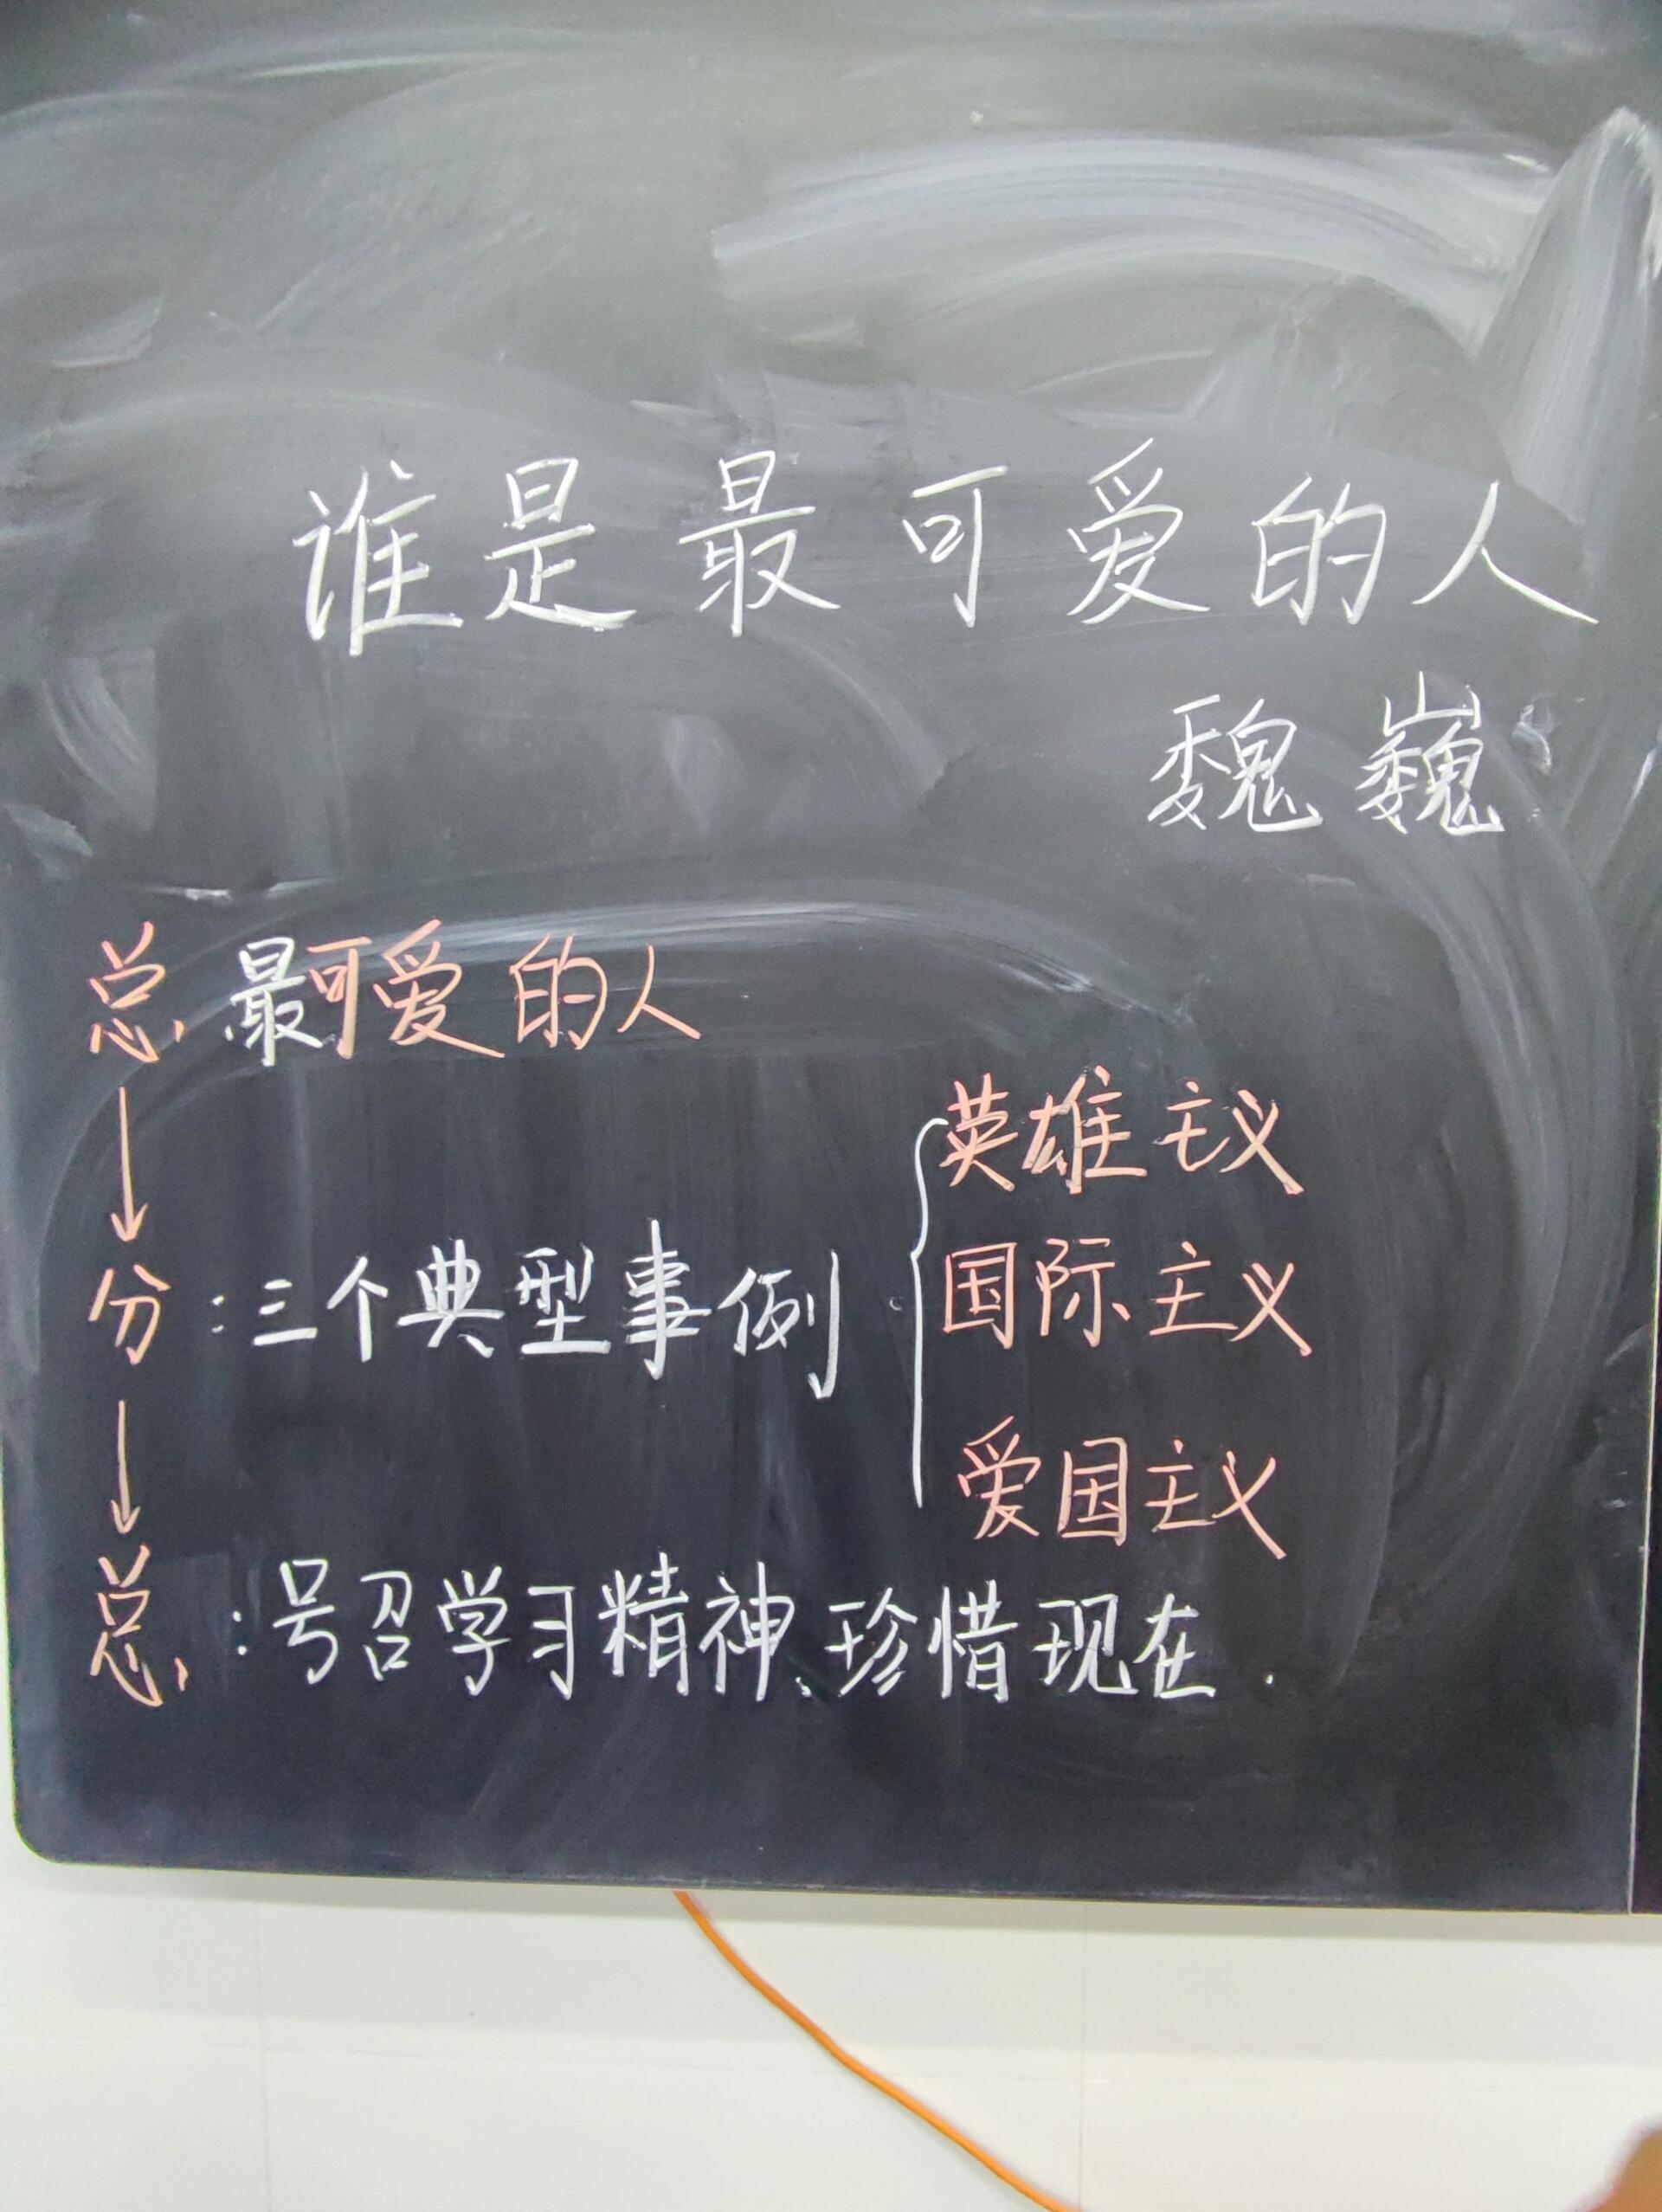 谁是最可爱的人
魏巍
总 最可爱的人
英雄主义
分:三个典型事例
国际主义
爱国主义
总:号召学习精神、珍惜现在.